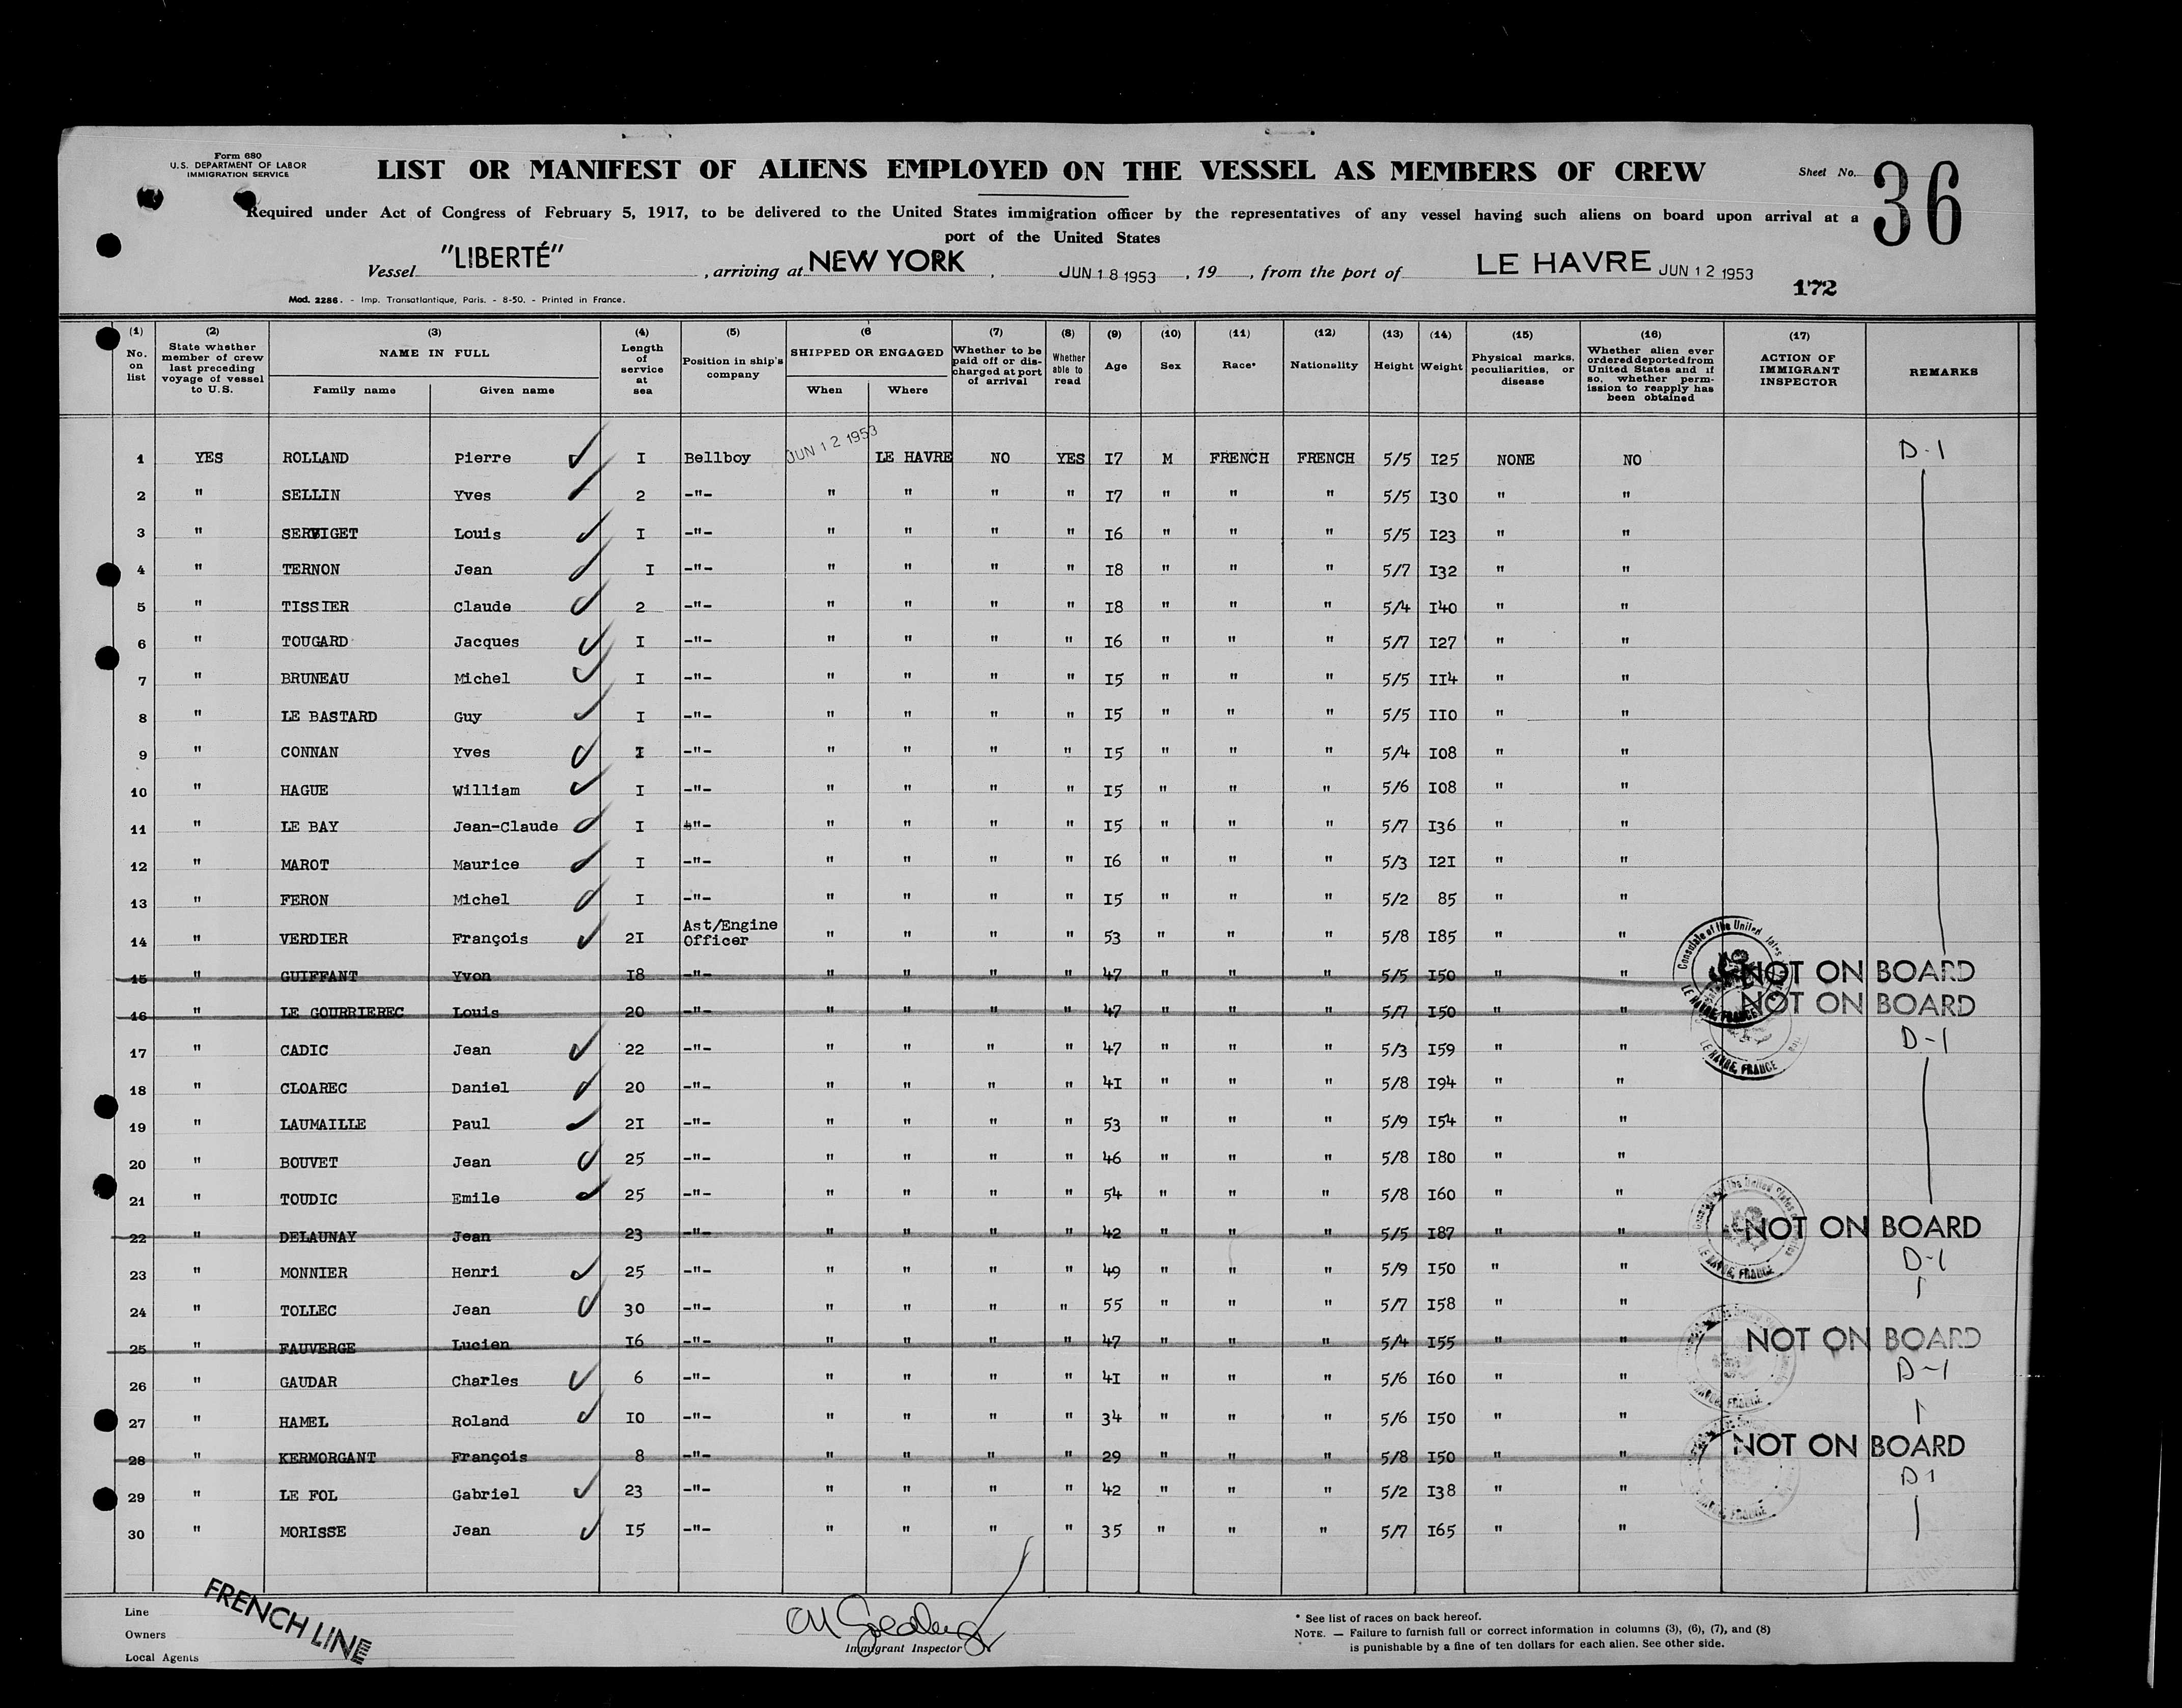 Form 680
U.S. DEPARTMENT OF LABOR
IMMIGRATION SERVICE
LIST OR MANIFEST OF ALIENS EMPLOYED ON THE VESSEL AS MEMBERS OF CREW
Sheet No. 36
Required under Act of Congress of February 5, 1917, to be delivered to the United States immigration officer by the representatives of any vessel having such aliens on board upon arrival at a
port of the United States
Vessel "LIBERTÉ" , arriving at NEW YORK , JUN 18 1953 , 19 , from the port of LE HAVRE JUN 12 1953
172
Mod. 2286. - Imp. Transatlantique, Paris. - 8-50. - Printed in France.
(1) No. on list
(2) State whether member of crew last preceding voyage of vessel to U.S.
(3) NAME IN FULL Family name Given name
(4) Length of service at sea
(5) Position in ship's company
(6 SHIPPED OR ENGAGED When Where
(7) Whether to be paid off or discharged at port of arrival
(8) Whether able to read
(9) Age
(10) Sex
(11) Race*
(12) Nationality
(13) Height
(14) Weight
(15) Physical marks, peculiarities, or disease
(16) Whether alien ever ordered deported from United States and if so, whether permission to reapply has been obtained
(17) ACTION OF IMMIGRANT INSPECTOR
REMARKS
1 YES ROLLAND Pierre I Bellboy JUN 12 1953 LE HAVRE NO YES I7 M FRENCH FRENCH 5/5 I25 NONE NO D-1
2 " SELLIN Yves 2 -"- " " " " I7 " " " 5/5 I30 " "
3 " SERVIGET Louis I -"- " " " " I6 " " " 5/5 I23 " "
4 " TERNON Jean I -"- " " " " I8 " " " 5/7 I32 " "
5 " TISSIER Claude 2 -"- " " " " I8 " " " 5/4 I40 " "
6 " TOUGARD Jacques I -"- " " " " I6 " " " 5/7 I27 " "
7 " BRUNEAU Michel I -"- " " " " I5 " " " 5/5 II4 " "
8 " LE BASTARD Guy I -"- " " " " I5 " " " 5/5 II0 " "
9 " CONNAN Yves I -"- " " " " I5 " " " 5/4 I08 " "
10 " HAGUE William I -"- " " " " I5 " " " 5/6 I08 " "
11 " LE BAY Jean-Claude I -"- " " " " I5 " " " 5/7 I36 " "
12 " MAROT Maurice I -"- " " " " I6 " " " 5/3 I2I " "
13 " FERON Michel I -"- " " " " I5 " " " 5/2 85 " "
14 " VERDIER François 2I Ast/Engine Officer " " " " 53 " " " 5/8 I85 " "
15 " GUIFFANT Yvon I8 -"- " " " " 47 " " " 5/5 I50 " " NOT ON BOARD
16 " LE GOURRIEREC Louis 20 -"- " " " " 47 " " " 5/7 I50 " " NOT ON BOARD
17 " CADIC Jean 22 -"- " " " " 47 " " " 5/3 I59 " " D-1
18 " CLOAREC Daniel 20 -"- " " " " 4I " " " 5/8 I94 " "
19 " LAUMAILLE Paul 2I -"- " " " " 53 " " " 5/9 I54 " "
20 " BOUVET Jean 25 -"- " " " " 46 " " " 5/8 I80 " "
21 " TOUDIC Emile 25 -"- " " " " 54 " " " 5/8 I60 " "
22 " DELAUNAY Jean 23 -"- " " " " 42 " " " 5/5 I87 " " NOT ON BOARD
23 " MONNIER Henri 25 -"- " " " " 49 " " " 5/9 I50 " " D-1
24 " TOLLEC Jean 30 -"- " " " " 55 " " " 5/7 I58 " "
25 " FAUVERGE Lucien I6 -"- " " " " 47 " " " 5/4 I55 " " NOT ON BOARD
26 " GAUDAR Charles 6 -"- " " " " 4I " " " 5/6 I60 " " D-1
27 " HAMEL Roland I0 -"- " " " " 34 " " " 5/6 I50 " "
28 " KERMORGANT François 8 -"- " " " " 29 " " " 5/8 I50 " " NOT ON BOARD
29 " LE FOL Gabriel 23 -"- " " " " 42 " " " 5/2 I38 " " D1
30 " MORISSE Jean I5 -"- " " " " 35 " " " 5/7 I65 " "
Consulate of the United
LE HAVRE, FRANCE
LE HAVRE, FRANCE
Line FRENCH LINE
Owners
Local Agents
Immigrant Inspector
* See list of races on back hereof.
NOTE. — Failure to furnish full or correct information in columns (3), (6), (7), and (8)
is punishable by a fine of ten dollars for each alien. See other side.